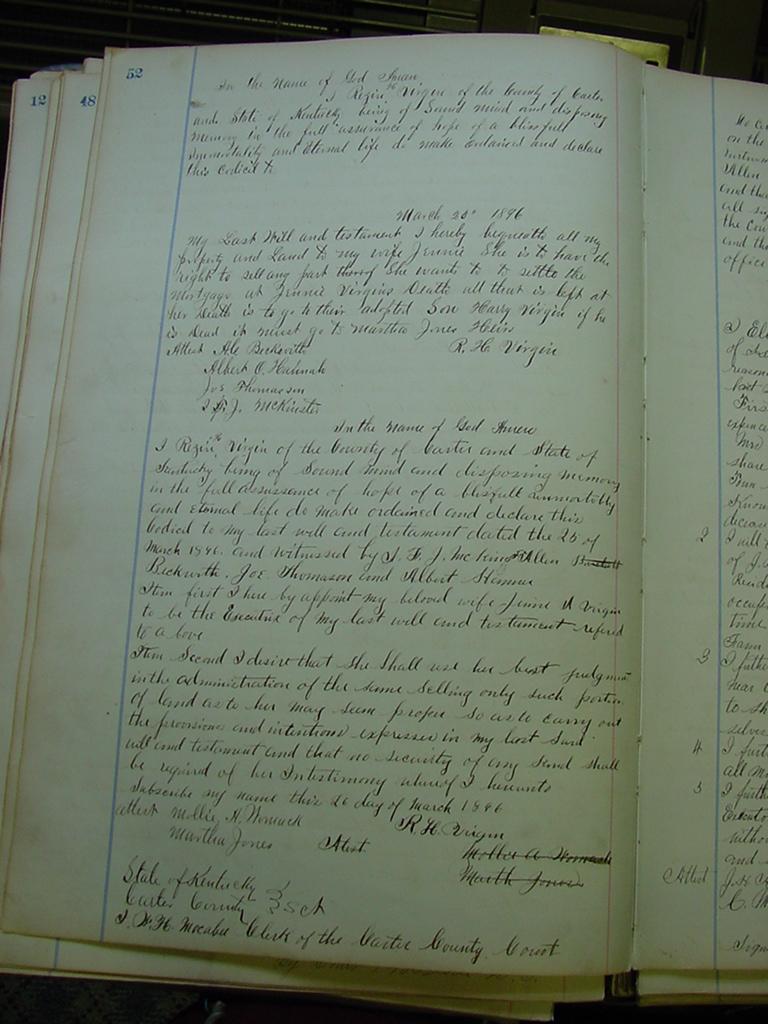 52
12
48
In the name of God Amen
I Rezin H Virgin of the County of Carter
and State of Kentucky being of Sound mind and disposing
memory in the full assurance of hope of a blissfull
immortality and Eternal life do make ordained and declare
this Codicil to
March 25th 1896
My Last Will and testament I hereby bequeath all my
property and Land to my wife Jennie She is to have the
right to sell any part thereof She wants to to settle the
Mortgage at Jennie Virgins Death all that is left at
her Death is to go to their adopted Son Harry Virgin if he
is Dead it must go to Martha Jones Heirs
Attest Ale Beckwith R. H. Virgin
Albert O. Hannah
Joe Thomasson
J. F. J. McKinster
In the name of God Amen
I Rezin H Virgin of the County of Carter and State of
Kentucky being of Sound mind and disposing memory
in the full assussance of hope of a blisfull immortality
and Eternal life do make ordained and declare this
Codicil to my last will and testament dated the 25 of
March 1896. and witnessed by J. F. J. McKinster Allen
Beckwith. Joe Thomason and Albert
Item first I here by appoint my beloved wife Jinnie A Virgin
to be the Executrix of my last will and testament refered
to a bove
Item Second I desire that she shall use her best judgment
in the administration of the same Selling only such portion
of land as to her may seem proper so as to carry out
the provisions and intentions expresser in my last Said
will and testament and that no security of any kind shall
be required of her In testimony whereof I hereunto
Subscribe my name this 26 day of March 1896
attest Mollie A. Womack R. H. Virgin
Martha Jones Atest. Mollie A Womack
Marth Jones
State of Kentucky
Carter County } Sct
I. W. H. Mocabee Clerk of the Carter County Court
on the
Allen
and tha
the Cou
and th
office
of
reason
Firs
Mrs
share
Know
2 I will
of J.
occup
time
Farm
3 I futh
near
to sh
selves
4 I furt
all m
5 I furth
Execut
witho
and
Attest J. H.
C. M
Sign